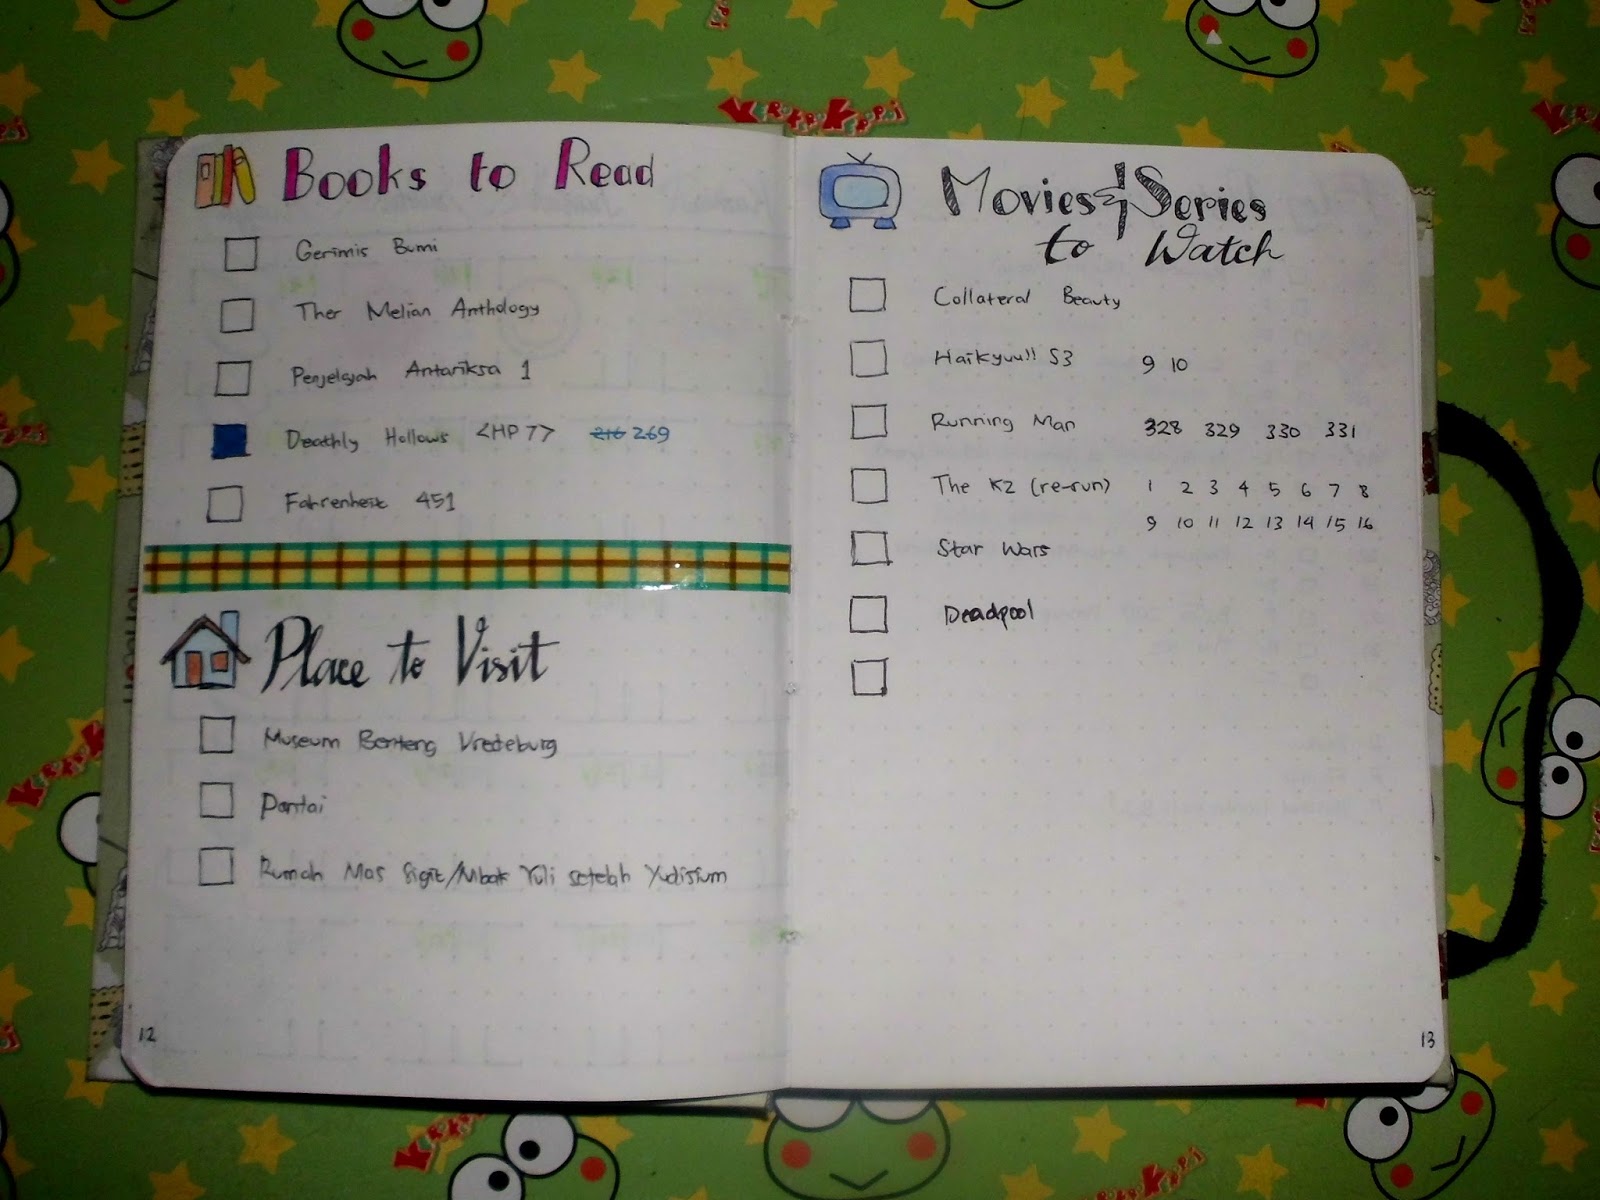 Books to Read
Gerimis Bumi
Ther Melian Anthology
Penjelajah Antariksa 1
Deathly Hollows <HP 7> 216 269
Fahrenheit 451
Place to Visit
Museum Benteng Vredeburg
Pantai
Rumah Mas Sigit/Mbak Yuli setelah Yudisium
12
Movies & Series
to Watch
Collateral Beauty
Haikyuu!! S3 9 10
Running Man 328 329 330 331
The K2 (re-run) 1 2 3 4 5 6 7 8
9 10 11 12 13 14 15 16
Star Wars
Deadpool
13
KEROKEROKEROPPI